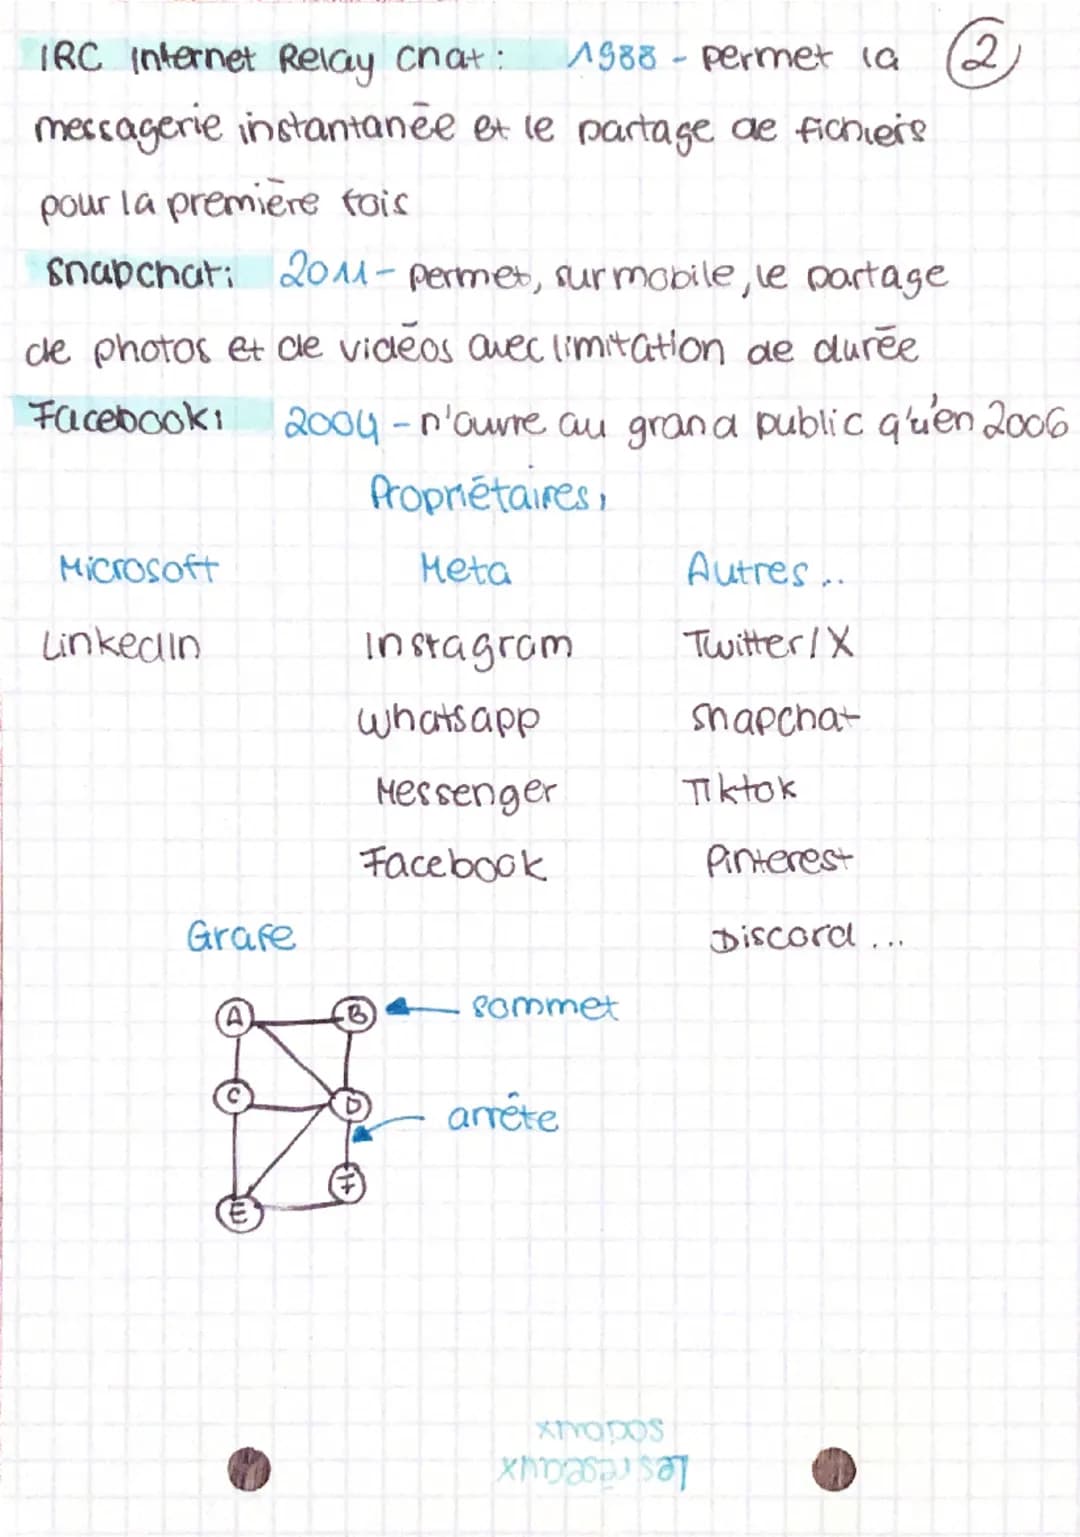 IRC Internet Relay Chat : 1988 - permet la 2
messagerie instantanée et le partage de fichiers
pour la première fois
Snapchat: 2011 - permet, sur mobile, le partage
de photos et de vidéos avec limitation de durée
Facebook: 2004 - n'ouvre au grand public qu'en 2006
Propriétaires:
Microsoft Meta Autres...
LinkedIn Instagram Twitter/X
Whatsapp Snapchat
Messenger Tiktok
Facebook Pinterest
Grafe Discord ...
A B sommet
C D arrête
F
E
Les réseaux
sociaux